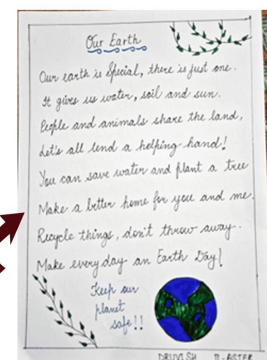 Our Earth
Our earth is Special, there is just one.
It gives us water, soil and sun.
People and animals share the land,
Let's all lend a helping hand!
You can save water and plant a tree
Make a better home for you and me.
Recycle things, don't throw away.
Make everyday an Earth Day!
Keep our
planet
safe!!